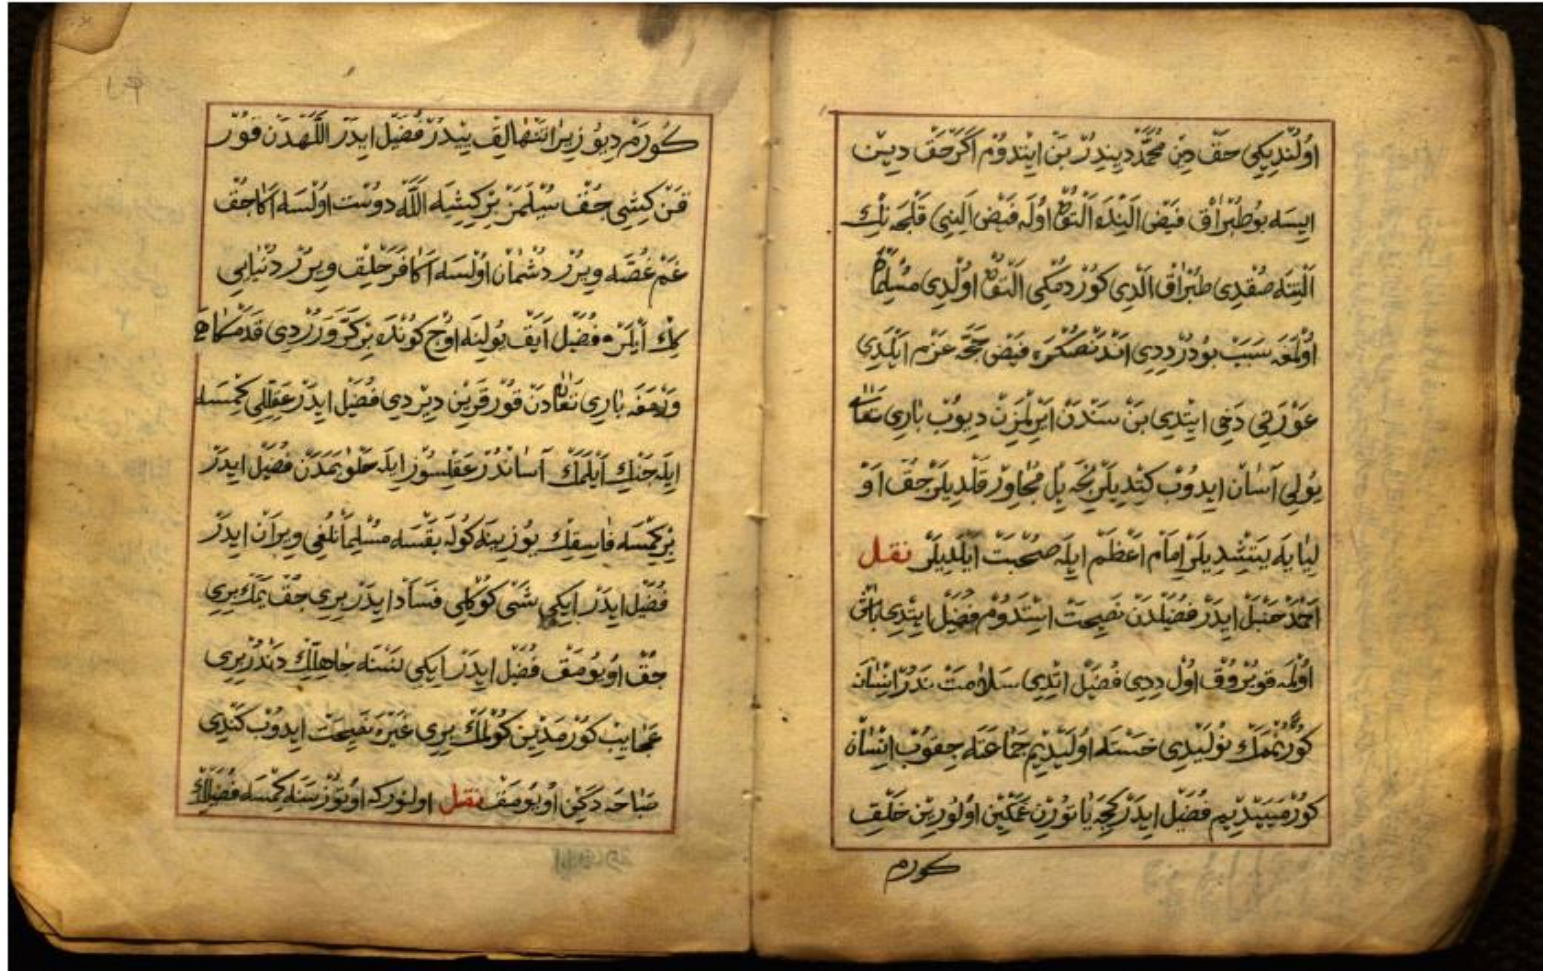 اولندیكی حق دین محمد دیندر بن ایتدوم اكر حق دین
ایسه بو طبراق فیض الینده التون اوله فیض الینی قلجه نك
التنه صقدی طبراق الدی كوردمكی التون اولدی مسلمان
اولمغه سبب بودر ددی اندنصكره فیض حجه عزم ایلدی
عورتی دخی ایتدی بن سندن ایرلمزن دیوب باری تعالی
یولی آسان ایدوب كتدیلر نجه ییل مجاور قلدیلر جق او
لیایه یتشدیلر امام اعظم ایله صحبت ایلدیلر نقل
احمد حنبل ایدر فضیلدن نصیحت استدوم فضیل ایتدی باش
اولمه قویروق اول ددی فضیل اتدی سلامت ندر انسان
كورممك نولیدی خسته اولیدیم جماعته چقوب انسان
كورمیبیدیم فضیل ایدر كیجه یاتورن غمكین اولورین خلق
كورم
كورم دیو زیرا تنهالق ییدر فضیل ایدر اللهدن قور
قن كیشی جق سیلمز بر كیشیه الله دوست اولسه اكا جق
غم غصه ویرر دشمان اولسه اكا فرحلیق ویرر دنیایی
كك ایلر فضیل ایق یولینه اوج كونده بر كره وررردی قدمكاهه
ورمغه باری تعالیدن قورقرین دیردی فضیل ایدر عقللی كمسه
ایله جنك ایلمك آساندر عقلسوز ایله حلوا یمدن فضیل ایدر
بر كمسه فاسقك یوزینه كوله بقسه مسلمانلغی ویران ایدر
فضیل ایدر ایكی شی كوكلی فساد ایدر بری جق یمك بری
جق اویومق فضیل ایدر ایكی نسنه جاهللك دندر بری
عجایب كورمدین كولمك بری غیره نصیحت ایدوب كندی
صباحه دكین اویومق نقل اولنور كه اوتوز سنه كمسه فضیلك